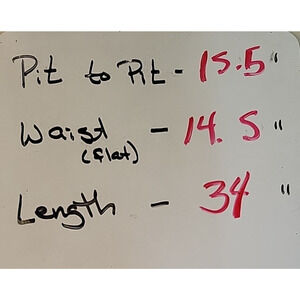 Pit to Pit - 15.5"
Waist - 14.5"
(flat)
Length - 34"